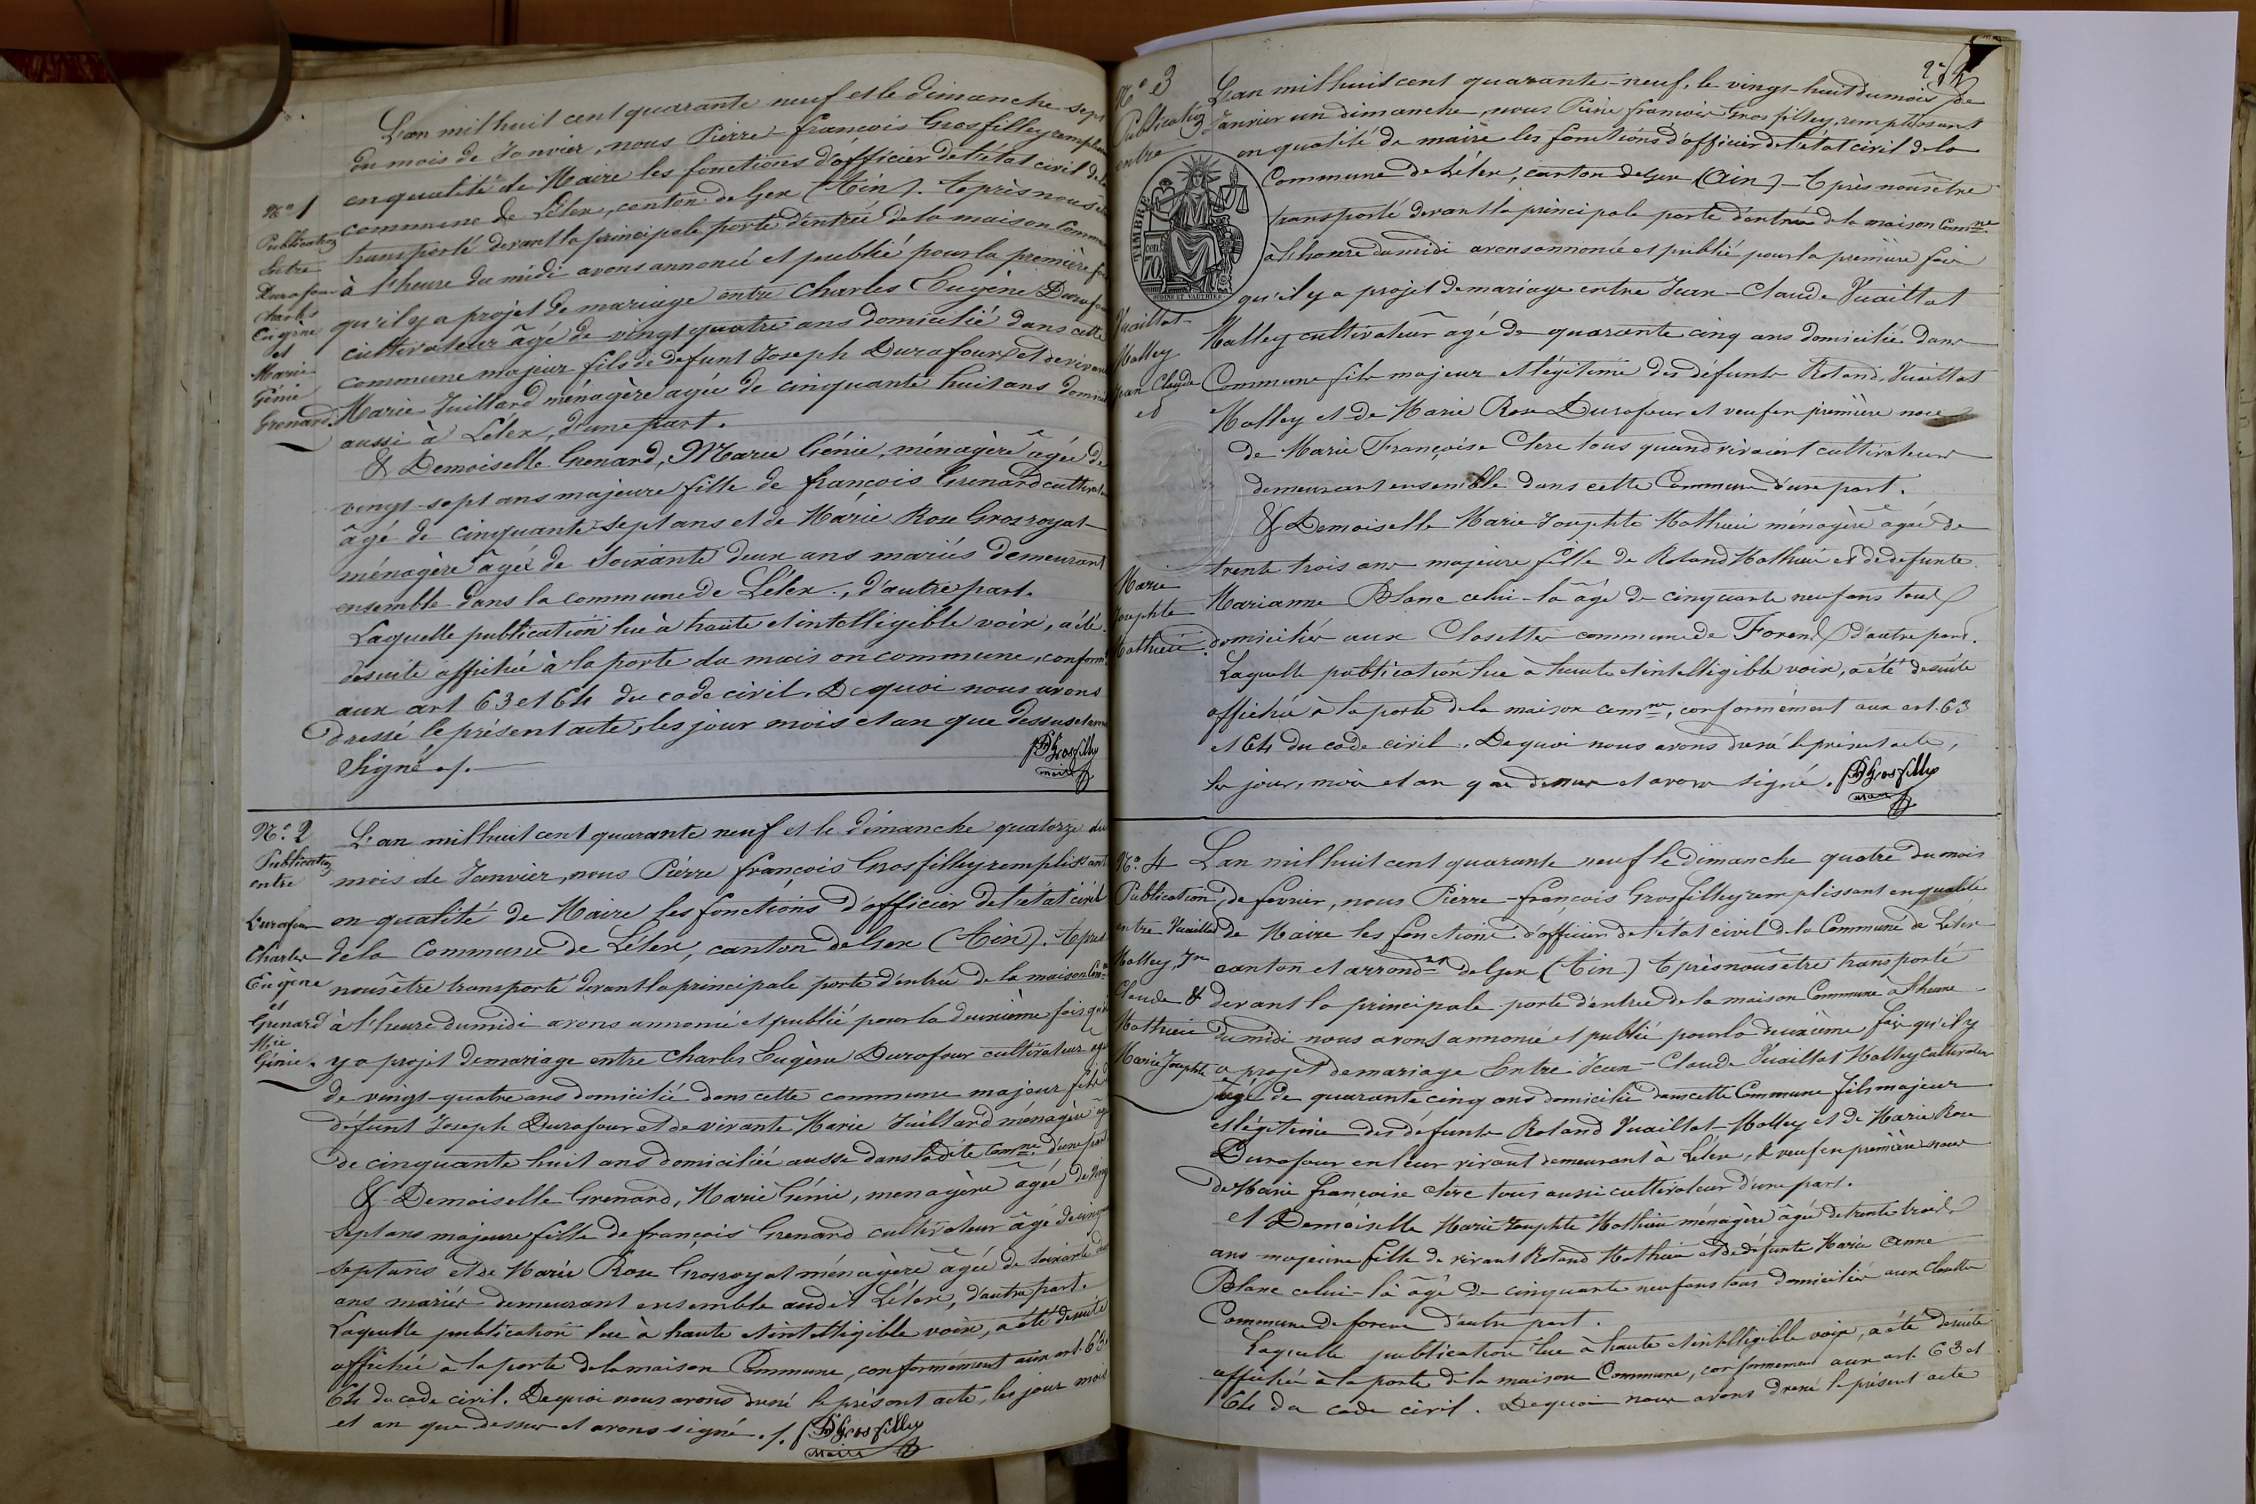 L'an mil huit cent quarante neuf et le dimanche sept
du mois de Janvier, nous Pierre-françois Grosfilley
en qualité de Maire les fonctions d'officier de l'état civil de la
commune de Lélex, canton de Gex (Ain). Après nous
transporté devant la principale porte d'entrée de la maison
à l'heure du midi avons annoncé et publié pour la première
qu'il y a projet de mariage entre Charles Eugène
cultivateur âgé de vingt quatre ans domicilié dans cette
commune majeur fils de defunt Joseph Durafour et de vivante
Marie Juillard ménagère agée de cinquante huit ans
aussi à Lélex, d'une part.
& Demoiselle Grenard, Marie Génie, ménagère âgée de
vingt-sept ans majeure fille de françois Grenard
âgé de cinquante-sept ans et de Marie Rose Grosroyat
ménagère âgée de Soixante deux ans mariés demeurant
ensemble dans la commune de Lélex, d'autre part.
Laquelle publication lue à haute et intelligible voix, a été
desuite affichée à la porte da mais on commune, conform
aux art 63 et 64 du code civil. De quoi nous avons
dressé le présent acte, les jour mois et an que dessus et
Signé ./.
PF Grosfilley
maire
N° 1
Publication
Entre
Durafour
Charles
Eugène
et
Marie
Génie
Grenard
N° 2
Publication
entre
Durafour
Charles
Eugène
et
Grenard
Mie
Génie.
L'an mil huit cent quarante neuf et le dimanche quatorze du
mois de Janvier, nous Pierre françois Grosfilley remplissant
en qualité de Maire les fonctions d'officier de l'état civil
de la Commune de Lélex, canton de Gex (Ain). Après
nous être transporté devant la principale porte d'entrée de la maison
à l'heure du midi avons annoncé et publié pour la deuxième fois qu'il
y a projet de mariage entre Charles Eugène Durafour cultivateur agé
de vingt-quatre ans domicilié dans cette commune majeur fils
défunt Joseph Durafour et de vivante Marie Juillard ménagère
de cinquante huit ans domiciliée aussi dans ladite Comne d'une part
& Demoiselle Grenard, Marie Génie, menagère âgée de
sept ans majeure fille de françois Grenard cultivateur âgé de
sept ans et de Marie Rose Grosroyat ménagère âgée de soixante
ans mariés demeurant ensemble audit Lélex, d'autre part.
Laquelle publication lue à haute et intelligible voix, a été desuite
affichée à la porte de la maison Commune, conformément aux art. 63
64 du code civil. De quoi nous avons dressé le présent acte, les jour mois
et an que dessus et avons signé ./. PF Grosfilley
maire
2e
N° 3
Publication
entre
Vuaillat
Molley
Jean Claude
et
Marie
Josephte
Mathieu
TIMBRE
70
L'an mil huit cent quarante-neuf, le vingt-huit du mois de
Janvier un dimanche, nous Pierre françois Grosfilley, remplissant
en qualité de maire les fonctions d'officier de l'état civil de la
Commune de Lélex, canton de Gex (Ain) - Après nous être
transporté devant la principale porte d'entrée de la maison Comne
à l'heure du midi avons annoncé et publié pour la première fois
qu'il y a projet de mariage entre Jean-Claude Vuaillat
Molley cultivateur agé de quarante cinq ans domicilié dans
Commune fils majeur et légitime des défunts Roland Vuaillat
Molley et de Marie Rose Durafour et veuf en première noce
de Marie Françoise Clerc tous quand vivaient cultivateurs
demeurant ensemble dans cette Commune d'une part.
& Demoiselle Marie Josephte Mathieu ménagère âgée de
trente trois ans majeure fille de Roland Mathieu et de defunte
Marianne Blanc celui-là âgé de cinquante neuf ans tous
domiciliés aux Closettes commune de Forens d'autre part.
Laquelle publication lue à haute et intelligible voix, a été desuite
affichée à la porte de la maison comne, conformément aux art. 63
et 64 du code civil. De quoi nous avons dressé le présent acte,
les jour, mois et an que dessus et avons signé. PF Grosfilley
maire
N° 4
Publication
entre Vuaillat
Molley, Jn
Claude &
Mathieu
Marie Josephte
L'an mil huit cent quarante neuf le dimanche quatre du mois
de fevrier, nous Pierre-françois Grosfilley remplissant en qualité
de Maire les fonctions d'officier de l'état civil de la Commune de Lélex
canton et arrondnt de Gex (Ain) Après nous être transporté
devant la principale porte d'entrée de la maison Commune a l'heure
du midi nous avons annoncé et publié pour la deuxième fois qu'il y
a projet de mariage Entre Jean-Claude Vuaillat Molley cultivateur
âgé de quarante cinq ans domicilié dans cette Commune fils majeur
et légitime des défunts Roland Vuaillat-Molley et de Marie Rose
Durafour en leur vivant demeurant à Lélex, & veuf en première noce
de Marie françoise Clerc tous aussi cultivateur d'une part.
et Demoiselle Marie Josephte Mathieu ménagère âgée de trente trois
ans majeure fille de vivant Roland Mathieu et de défunte Marie Anne
Blanc celui-là âgé de cinquante neuf ans tous domiciliés aux Closettes
Commune de forens d'autre part.
Laquelle publication lue à haute et intelligible voix, a été desuite
affichée à la porte de la maison Commune, conformement aux art. 63 et
64 du code civil. De quoi nous avons dressé le présent acte